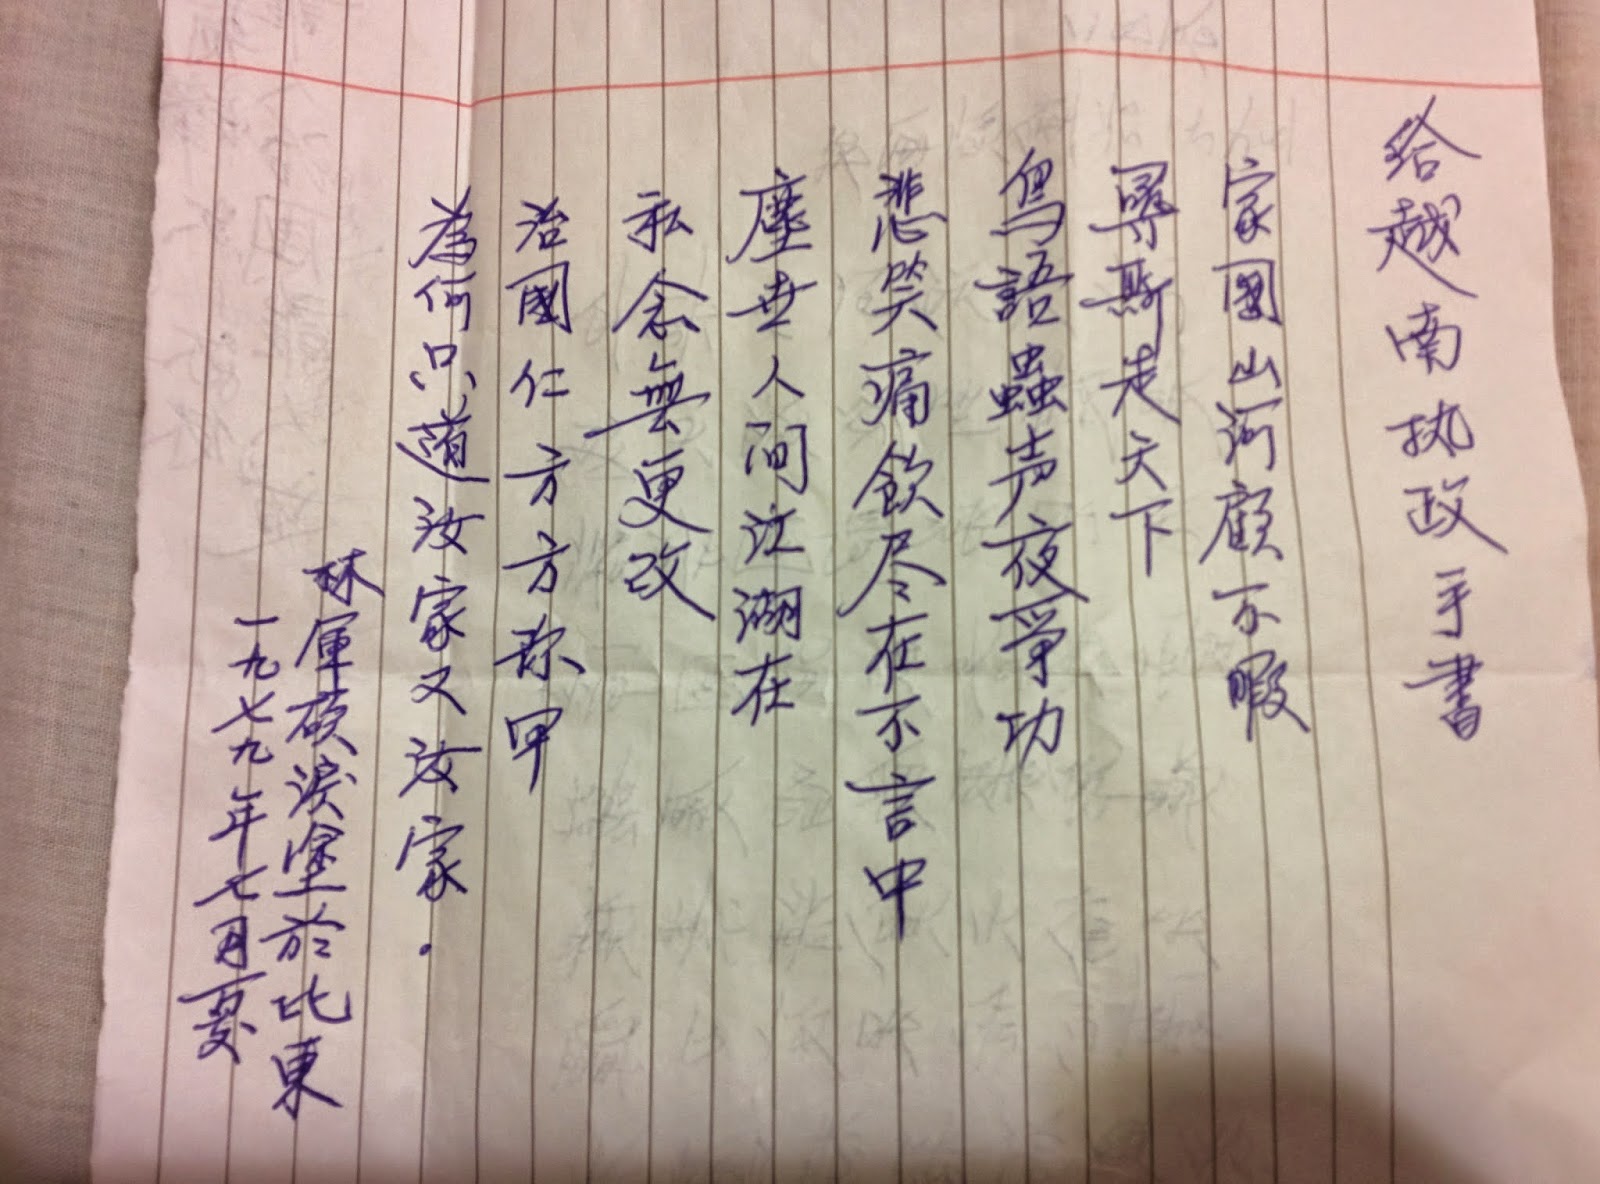 给越南执政手書
家國山河顧不暇
尋斯走天下
鳥語蟲声夜爭功
悲笑痛飲尽在不言中
塵世人间江湖在
私念無更改
治國仁方方称甲
為何只道汝家又汝家.
林庫硕淚墜於比東
一九七九年七月夏